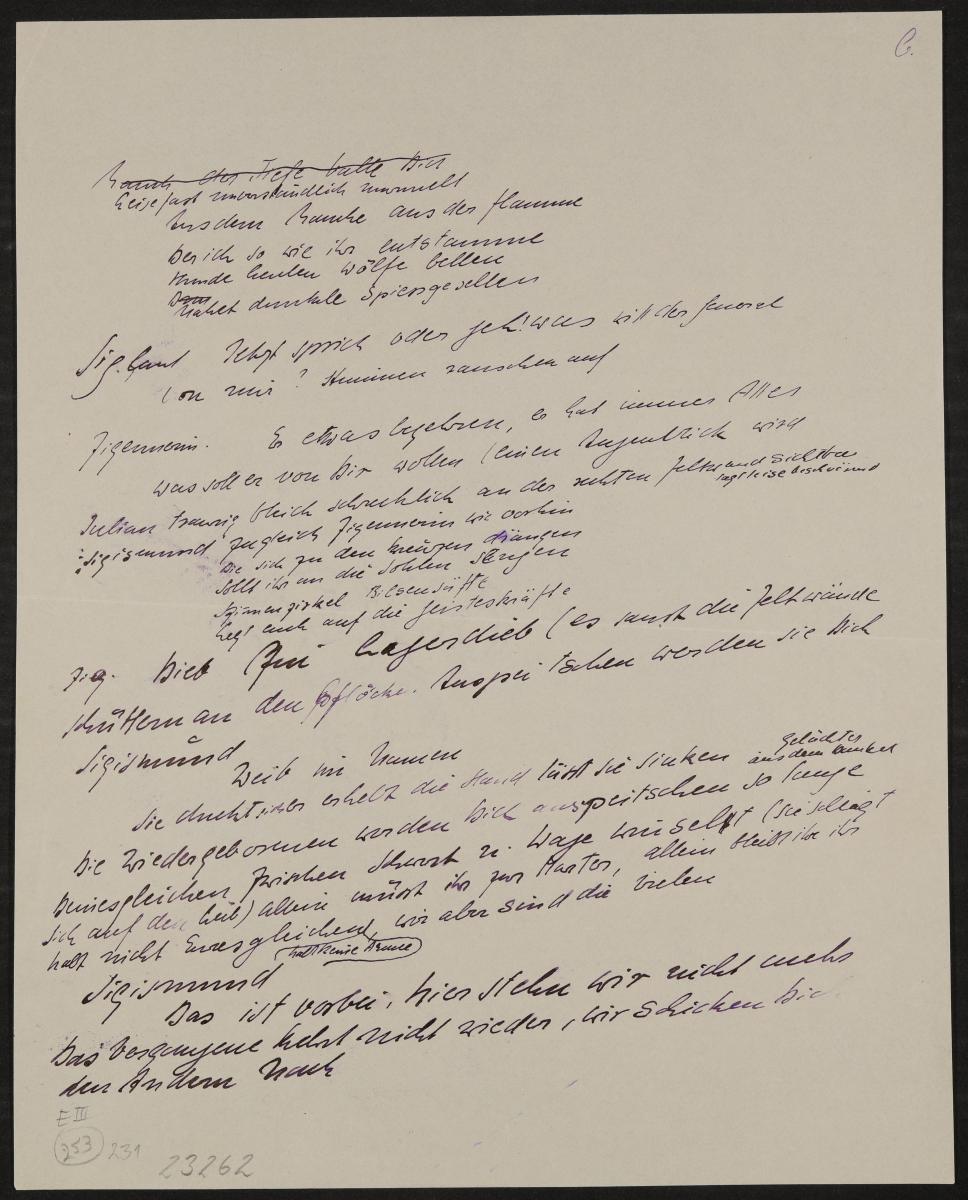 6.
Rauch der Tiefe balle Dich
leise fast unverständlich murmelt
Aus dem Rauche aus der Flamme
Der ich so wie ihr entstamme
Hunde heulen Wölfe bellen
Nahet dunkle Spiessgesellen
Sig. laut Jetzt sprich oder geh! was will der General
von mir? Stimmen rauschen auf
Zigeunerin. Er etwas, er hat immer Alles
was soll er von Dir wollen (einen Augenblick wird
Julian traurig bleich schrecklich an der rechten Zeltwand sichtbar
sagt leise beschwörend
Sigismund zugleich Zigeunerin wie vorhin
Die sich zu den Kreuzen drängen
Sollt ihr an die Sohlen sengen
Spinnenzirkel Bilsensäfte
Legt euch auf die Geisteskräfte
Zig. Dieb (Zur Lagerdieb (es saust die Zeltwände
schüttern an den Pflöcken. Auspeitschen werden sie Dich
Sigismund
Weib im Namen
Gelächter
Sie erhebt die Hand lässt sie sinken aus dem Dunkel
Die Wiedergeborenen werden Dich auspeitschen so lange
Deinesgleichen zwischen Schwert u. Wage winselt (sie schlägt
sich auf den Leib) allein müsst ihr zur Marter, allein bleibt ihr ihr
habt nicht Euresgleichen, wir aber sind die vielen
habt keine Arme
Sigismund
Das ist vorbei, hier stehn wir nicht mehr
Das Vergangene kehrt nicht wieder, wir schicken Dich
den Andern nach
E III
253 231
23262